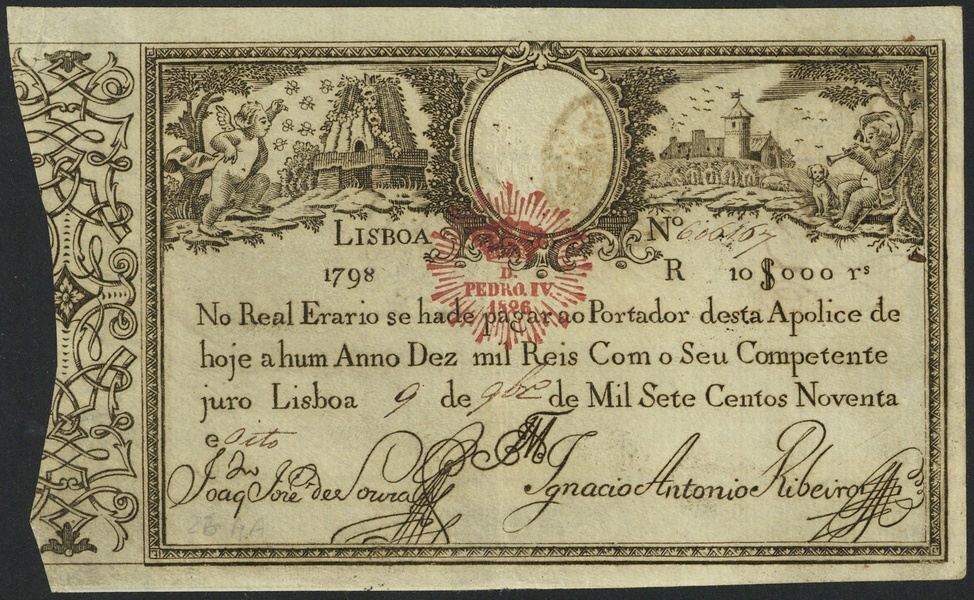 LISBOA Nº
1798 R 10$000 rs
D.
PEDRO. IV.
1826
No Real Erario se hade pagar ao Portador desta Apolice de
hoje a hum Anno Dez mil Reis Com o Seu Competente
juro Lisboa 9 de 9bro de Mil Sete Centos Noventa
e oito
Joaq José de Souza
Ignacio Antonio Ribeiro